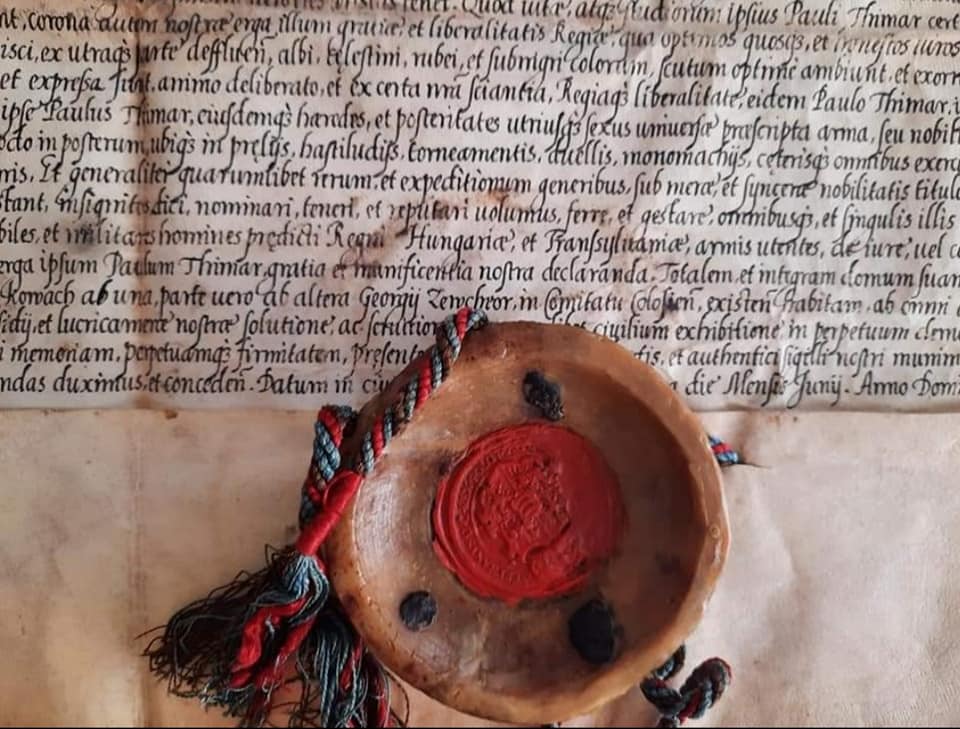 Quod
nt, corona autem nostræ erga illum gratiæ, et liberalitatis Regiæ, qua optimos quosqȝ, et honestos uiros
isci, ex utraqȝ parte defflueñ, albi, celestini, rubei, et subnigri colorum, scutum optime ambiunt, et exorn
et expressa sunt, animo deliberato, et ex certa nr̃a scientia, Regiaqȝ liberalitate, eidem Paulo Thimar, i
ipse Paulus Thimar, eiusdemqȝ hæredes, et posteritates utriusqȝ sexus uniuersæ præscripta arma, seu nobili
octo in posterum, ubiqȝ in prelijs, hastiludijs, torneamentis, duellis, monomachijs, ceterisqȝ omnibus exerc
nis, Et generaliter quarumlibet rerum, et expeditionum generibus, sub meræ, et synceræ nobilitatis titulo
stant, insigniti dici, nominari, teneri, et reputari uolumus, ferre, et gestare, omnibusqȝ, et singulis illis
biles, et militares homines predicti Regni Hungariæ, et Transsyluaniæ, armis utentes, de iure, uel co
erga ipsum Paulum Thimar, gratia et munificentia nostra declaranda. Totalem, et integram domum suam
Kowach ab una, parte uero ab altera Georgij Zewcheor, in Comitatu Colosieñ, existeñ habitam, ab omni
sidij, et lucricameræ nostræ solutione, ac ciuilium exhibitione in perpetuum clem
i memoriam, perpetuamqȝ firmitatem, presentes et authentici sigilli nostri munim
ndas duximus, et concedeñ. Datum in die Mensis Junij. Anno Domi